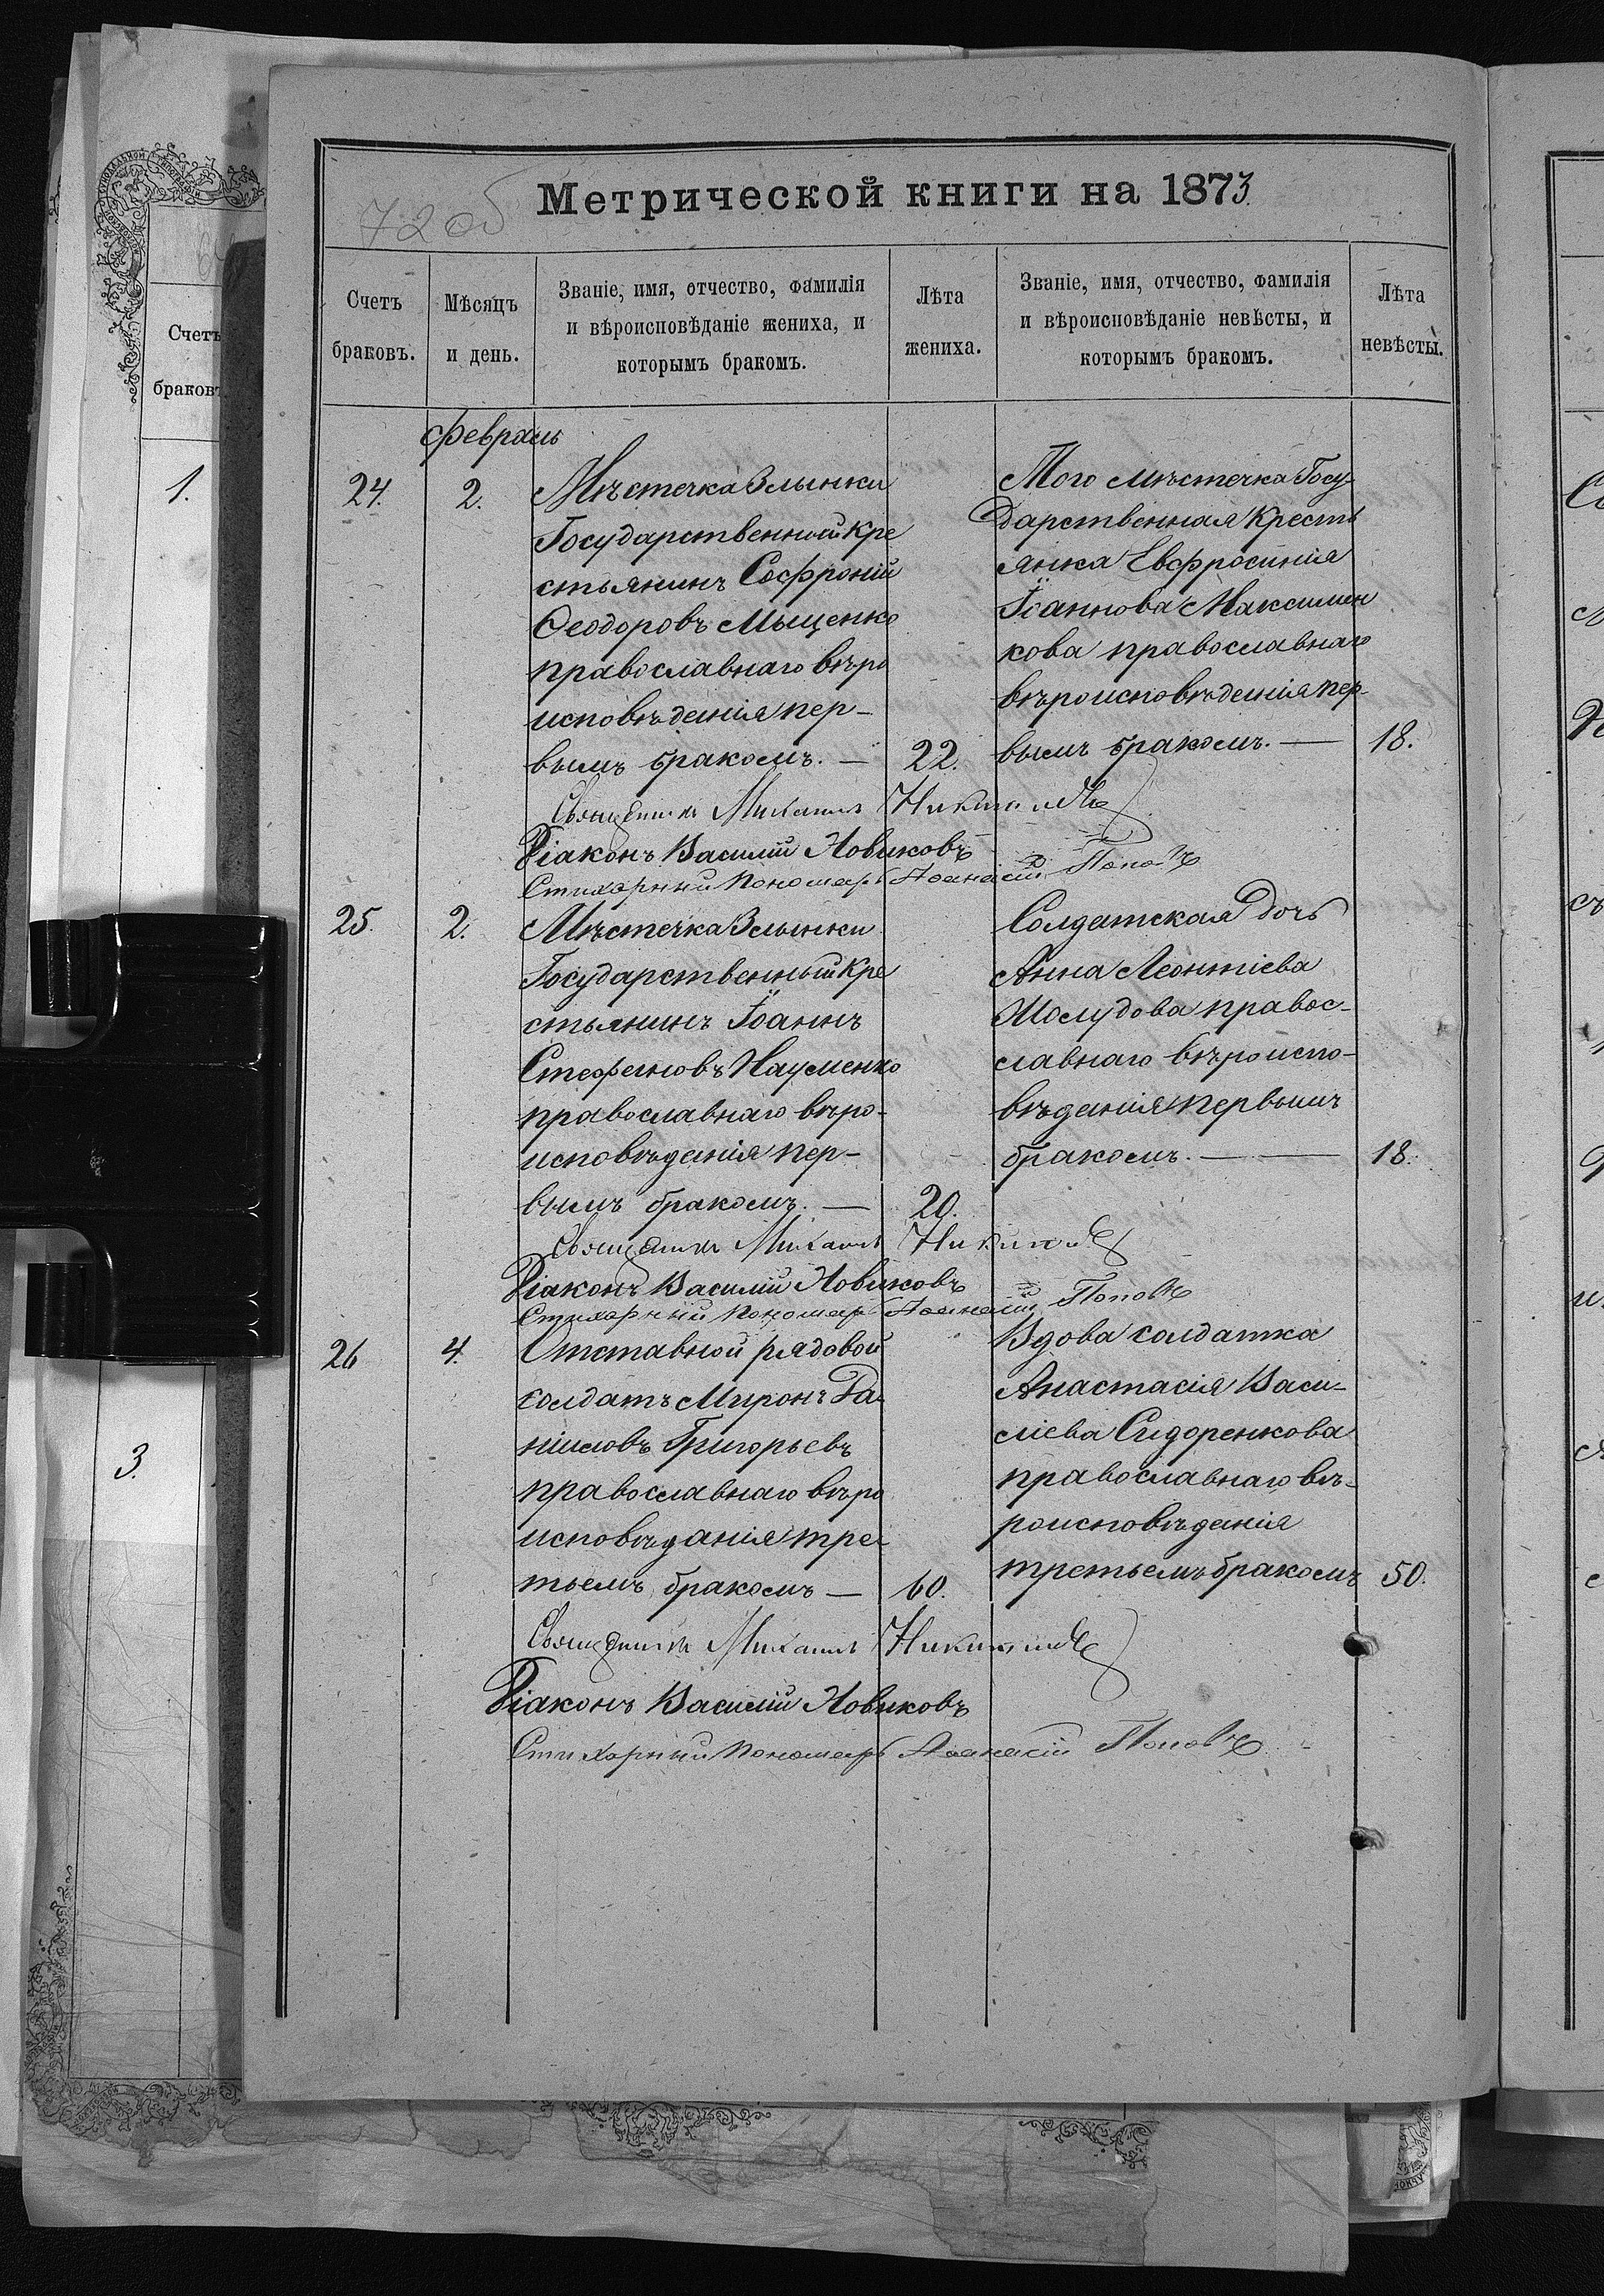 72 об
Метрической книги на 1873
Счетъ браковъ.
Мѣсяцъ и день.
Званіе, имя, отчество, фамилія
и вѣроисповѣданіе жениха, и
которымъ бракомъ.
Лѣта жениха.
Званіе, имя, отчество, фамилія
и вѣроисповѣданіе невѣсты, и
которымъ бракомъ.
Лѣта невѣсты.
Февраль
24. 2.
Мѣстечка Злынки
Государственный кре
стьянинъ Софроній
Ѳеодоровъ Мыщенко
православнаго вѣро
исповѣденія пер-
вымъ бракомъ. — 22.
Того мѣстечка Госу-
дарственная кресть
янка Евфросинія
Іоаннова Максимен
кова православнаго
вѣроисповѣденія пер-
вымъ бракомъ. — 18.
Священникъ Михаилъ Никитинъ
Діаконъ Василій Новиковъ
Стихарный Пономарь Аѳанасій Поповъ
25. 2.
Мѣстечка Злынки
Государственный кре
стьянинъ Іоаннъ
Стефановъ Науменко
православнаго вѣро-
исповѣданія пер-
вымъ бракомъ. — 20.
Солдатская дочь
Анна Леонтіева
Шолудова правос-
славнаго вѣроиспо-
вѣданія первымъ
бракомъ. — 18.
Священникъ Михаилъ Никитинъ
Діаконъ Василій Новиковъ
Стихарный Пономарь Аѳанасій Поповъ
26 4.
Отставной рядовой
солдатъ Миронъ Да-
ніиловъ Григорьевъ
православнаго вѣро
исповѣданія тре-
тьемъ бракомъ — 60.
Вдова солдатка
Анастасія Васи-
ліева Сидоренкова
православнаго вѣ-
роисповѣданія
третьемъ бракомъ 50.
Священникъ Михаилъ Никитинъ
Діаконъ Василій Новиковъ
Стихарный Пономарь Аѳанасій Поповъ
Счетъ
браковъ
1.
3.